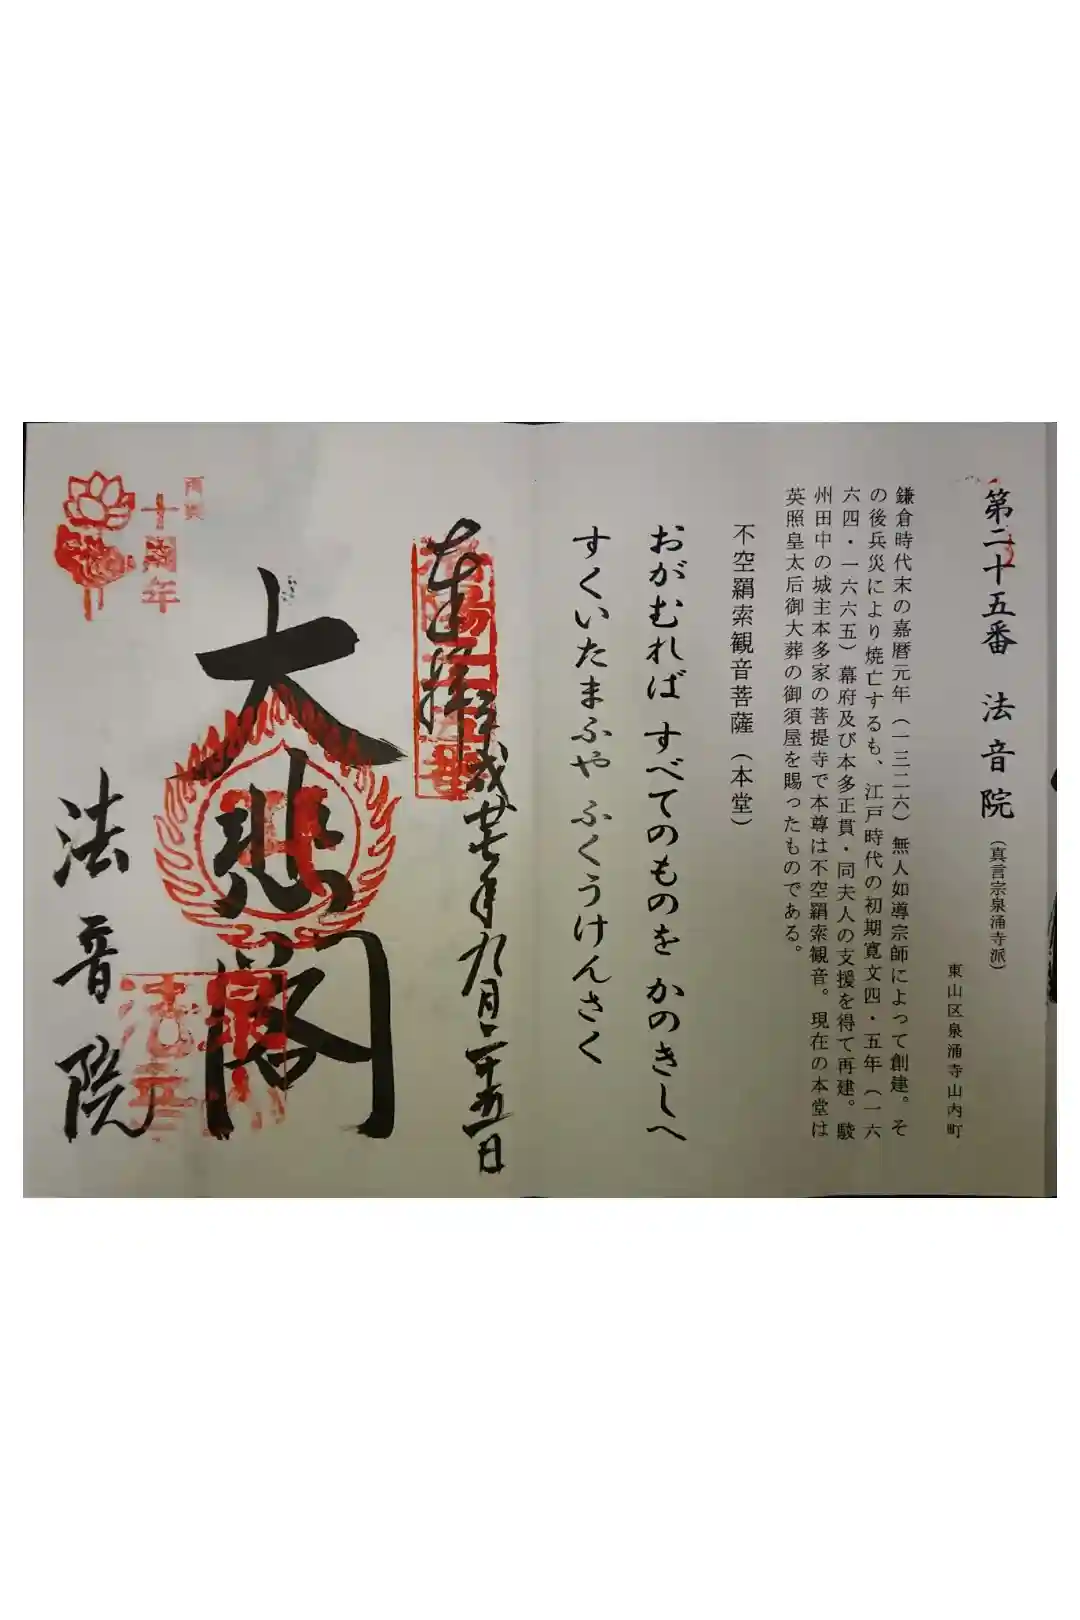 第二十五番 法音院（真言宗泉涌寺派）
東山区泉涌寺山内町
鎌倉時代末の嘉暦元年（一三二六）無人如導宗師によって創建。そ
の後兵災により焼亡するも、江戸時代の初期寛文四・五年（一六
六四・一六六五）幕府及び本多正貫・同夫人の支援を得て再建。駿
州田中の城主本多家の菩提寺で本尊は不空羂索観音。現在の本堂は
英照皇太后御大葬の御須屋を賜ったものである。
不空羂索観音菩薩（本堂）
おがむれば すべてのものを かのきしへ
すくいたまふや ふくうけんさく
奉拝
平成廿七年九月二十五日
大悲閣
法音院
再興
十周年